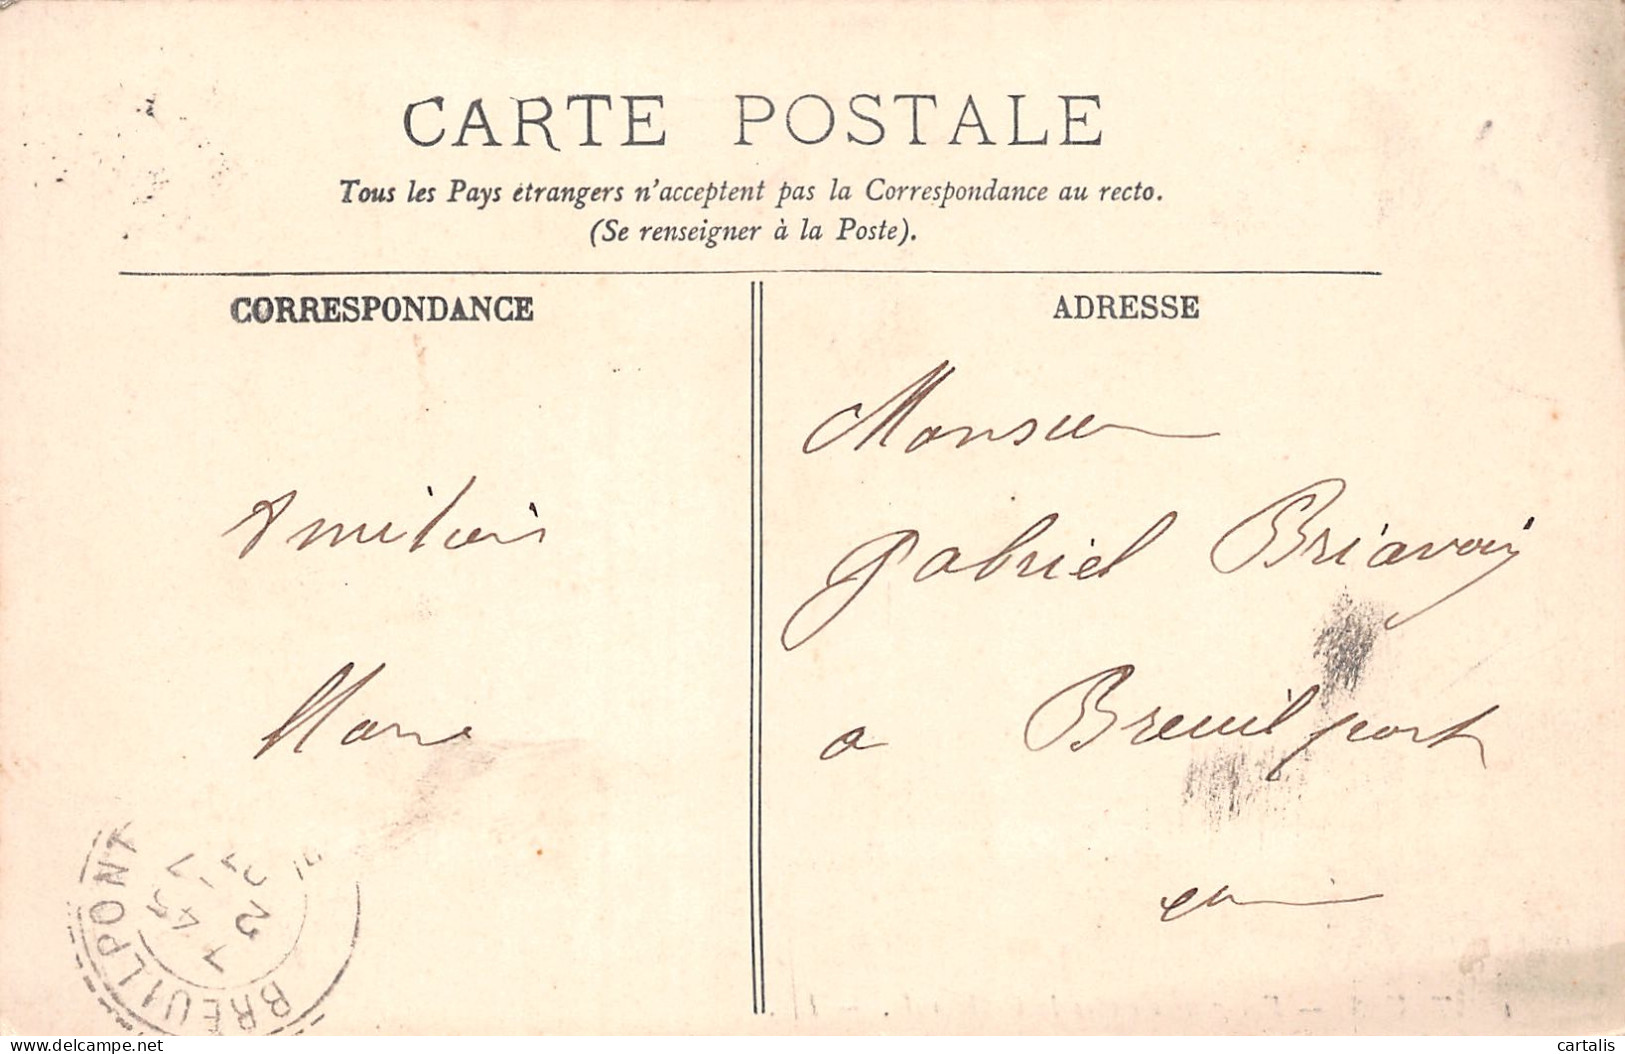 CARTE POSTALE
Tous les Pays étrangers n'acceptent pas la Correspondance au recto.
(Se renseigner à la Poste).
CORRESPONDANCE
ADRESSE
Monsieur
Gabriel Briavoin
a Breuilpont
eure
Marie
BREUILPONT
cartalis
delcampe.net